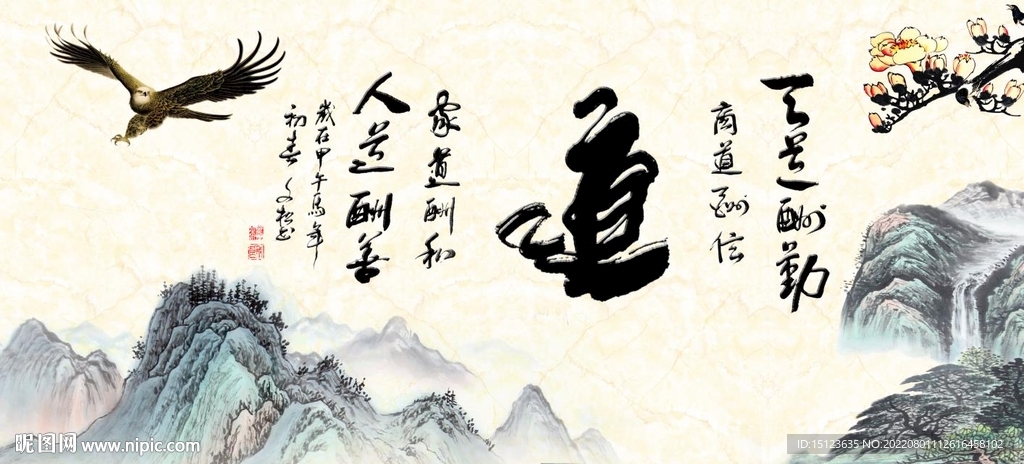 天道酬勤
商道酬信
道
家道酬和
人道酬善
歲在甲午馬年
初春文松书
昵图网 www.nipic.com
ID:15123635 NO:20220801112616458102